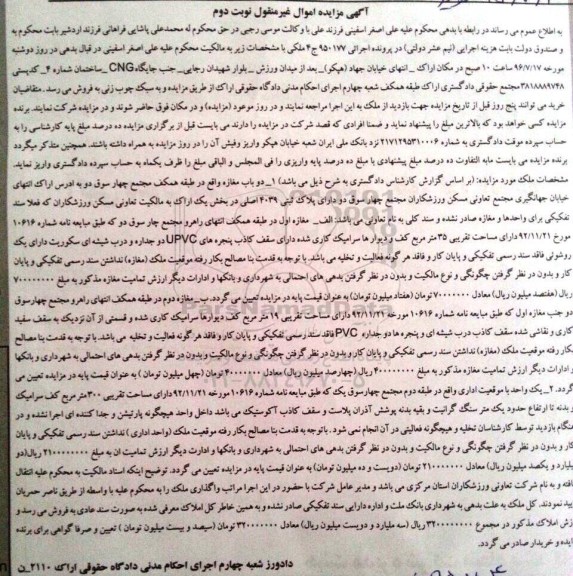 آگهی مزایده اموال غیرمنقول نوبت دوم
به اطلاع عموم می رساند در رابطه با بدهی محکوم علیه علی اصغر اسفینی فرزند علی با وکالت موسی رجبی در حق محکوم له محمدعلی پاشایی فراهانی فرزند اردشیر بابت محکوم به
و صندوق دولت بابت هزینه اجرایی (نیم عشر دولتی) در پرونده اجرائی ۹۵۰۱۷۷ ج۴ ملکی با مشخصات زیر به مالکیت محکوم علیه علی اصغر اسفینی در قبال بدهی در روز دوشنبه
مورخه ۹۶/۷/۱۷ ساعت ۱۰ صبح در مکان اراک _ انتهای خیابان جهاد (هپکو)_ بعد از میدان ورزش _ بلوار شهیدان رجایی_ جنب جایگاه CNG_ ساختمان شماره ۴_ کدپستی
۳۸۱۸۸۸۹۷۴۸ مجتمع حقوقی دادگستری اراک طبقه همکف شعبه چهارم اجرای احکام مدنی دادگاه حقوقی اراک از طریق مزایده و به سبک چوب زنی به فروش می رسد. متقاضیان
خرید می توانند پنج روز قبل از تاریخ مزایده جهت بازدید از ملک به این اجرا مراجعه نمایند و در روز موعود (مزایده) و در مکان فوق حاضر شوند و در مزایده شرکت نمایند. برنده
مزایده کسی خواهد بود که بالاترین مبلغ را پیشنهاد نماید و ضمنا افرادی که قصد شرکت در مزایده را دارند می بایست قبل از برگزاری مزایده ده درصد مبلغ پایه کارشناسی را به
حساب سپرده موقت دادگستری به شماره ۲۱۷۱۲۹۵۳۱۰۰۰۶ نزد بانک ملی ایران شعبه خیابان هپکو واریز وفیش آن را در روز مزایده به همراه داشته باشند. همچنین متذکر میگردد
برنده مزایده می بایست مابه التفاوت ده درصد مبلغ پیشنهادی با مبلغ ده درصد پایه واریزی را فی المجلس و الباقی مبلغ را ظرف یکماه به حساب سپرده دادگستری واریز نماید.
مشخصات ملک مورد مزایده: (بر اساس گزارش کارشناس دادگستری به شرح ذیل می باشد) ۱_ دو باب مغازه واقع در طبقه همکف مجتمع چهار سوق دو به ادرس اراک انتهای
خیابان جهانگیری مجتمع تعاونی مسکن ورزشکاران مجتمع چهار سوق دو دارای پلاک ثبتی ۴۰۳۹ اصلی در بخش یک اراک به مالکیت تعاونی مسکن ورزشکاران که فعلا سند
تفکیکی برای واحدها و مغازه صادر نشده و سند کلی به نام تعاونی می باشد: الف_ مغازه اول در طبقه همکف انتهای راهرو مجتمع چار سوق دو که طبق مبایعه نامه شماره ۱۰۶۱۶
مورخ ۹۲/۱۱/۲۱ دارای مساحت تقریبی ۳۵ متر مربع کف و دیوار ها سرامیک کاری شده دارای سقف کاذب پنجره های UPVC دو جداره و درب شیشه ای سکوریت دارای یک
روشنوئی فاقد سند رسمی تفکیکی و پایان کار و فاقد هر گونه فعالیت و تخلیه می باشد. با توجه به قدمت بنا مصالح بکار رفته موقعیت ملک (مغازه) نداشتن سند رسمی تفکیکی و پایان
کار و بدون در نظر گرفتن چگونگی و نوع مالکیت و بدون در نظر گرفتن بدهی های احتمالی به شهرداری و بانکها و ادارات دیگر ارزش تمامیت مغازه مذکور به مبلغ ۷۰۰۰۰۰۰۰۰
ریال (هفتصد میلیون ریال) معادل ۷۰۰۰۰۰۰۰ تومان (هفتاد میلیون تومان) به عنوان قیمت پایه در مزایده تعیین می گردد. ب_ مغازه دوم در طبقه همکف انتهای راهرو مجتمع چهارسوق
دو جنب مغازه اول که طبق مبایعه نامه شماره ۱۰۶۱۶ مورخه ۹۲/۱۱/۲۱ دارای مساحت تقریبی ۱۹ متر مربع کف دیوارها سرامیک کاری شده و قسمتی از آن نزدیک به سقف سفید
کاری و نقاشی شده سقف کاذب درب شیشه ای و پنجره ها دو جداره PVC فاقد سند رسمی تفکیکی و پایان کار و فاقد هر گونه فعالیت و تخلیه می باشد. با توجه به قدمت بنا مصالح
بکار رفته موقعیت ملک (مغازه) نداشتن سند رسمی تفکیکی و پایان کار و بدون در نظر گرفتن چگونگی و نوع مالکیت و بدون در نظر گرفتن بدهی های احتمالی به شهرداری و بانکها
و ادارات دیگر ارزش تمامیت مغازه مذکور به مبلغ ۴۰۰۰۰۰۰۰۰ ریال (چهارصد میلیون ریال) معادل ۴۰۰۰۰۰۰۰ تومان (چهل میلیون تومان) به عنوان قیمت پایه در مزایده تعیین می
گردد. ۲_ یک واحد با موقعیت اداری واقع در طبقه دوم مجتمع چهارسوق یک که طبق مبایعه نامه شماره ۱۰۶۱۶ مورخه ۹۲/۱۱/۲۱ دارای مساحت تقریبی ۳۰۰ متر مربع کف سرامیک
و بدنه تا ارتفاع حدود یک متر سنگ گرانیت و بقیه بدنه پوشش آذران پلاست و سقف کاذب آکوستیک می باشد داخل واحد هیچگونه پارتیشن و جدا کننده ای اجرا نشده و در
هنگام بازدید توسط کارشناسان تخلیه و هیچگونه فعالیتی در آن انجام نمی شود. باتوجه به قدمت بنا مصالح بکار رفته موقعیت ملک (واحد اداری) نداشتن سند رسمی تفکیکی و پایان
کار و بدون در نظر گرفتن چگونگی و نوع مالکیت و بدون در نظر گرفتن بدهی های احتمالی به شهرداری و بانکها و ادارت دیگر ارزش تمامیت ان به مبلغ ۲۱۰۰۰۰۰۰۰۰ ریال(دو
میلیارد و یکصد میلیون ریال) معادل ۲۱۰۰۰۰۰۰۰ تومان (دویست و ده میلیون تومان) به عنوان قیمت پایه در مزایده تعیین می گردد. توضیح اینکه اسناد مالکیت به محکوم علیه انتقال
یافته و به نام شرکت تعاونی ورزشکاران استان مرکزی می باشد و مدیر عامل شرکت با حضور در این اجرا مراتب واگذاری ملک را به محکوم علیه با واسطه از طریق ناصر حمریان
تایید نمودند. کل ملک به علت بدهی به شهرداری بانک ملت و اداره دارایی سند تفکیکی صادر نشده و به همین خاطر کل املاک معرفی شده به صورت سند عادی به فروش می رسد و
ارزش املاک مذکور در مجموع ۳۲۰۰۰۰۰۰۰۰ ریال (سه ملیارد و دویست میلیون ریال) معادل ۳۲۰۰۰۰۰۰۰ تومان (سیصد و بیست میلیون تومان ) تعیین و صرفا گواهی برای برنده
مزایده و خریدار صادر می گردد.
دادورز شعبه چهارم اجرای احکام مدنی دادگاه حقوقی اراک ۲۱۱۰_ ق